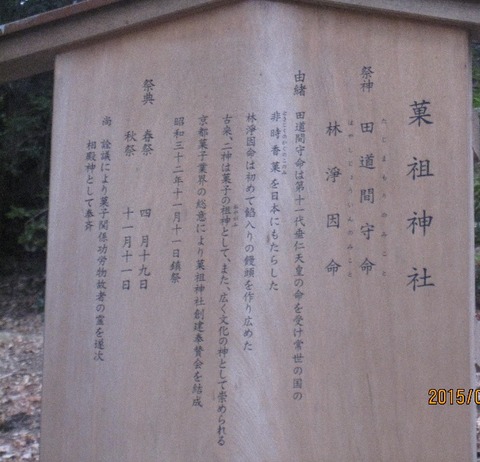 菓祖神社
祭神 田道間守命
たじまもりのみこと
林淨因命
はやしじょういんのみこと
由緒 田道間守命は第十一代垂仁天皇の命を受け常世の国の
非時香菓を日本にもたらした
ときじくのかくのこのみ
林淨因命は初めて餡入りの饅頭を作り広めた
古来、二神は菓子の祖神として、また、広く文化の神として崇められる
おやがみ
京都菓子業界の総意により菓祖神社創建奉賛会を結成
昭和三十二年十一月十一日鎮祭
祭典 春祭 四月十九日
秋祭 十一月十一日
尚 詮議により菓子関係功労物故者の霊を逐次
相殿神として奉斎
2015/0